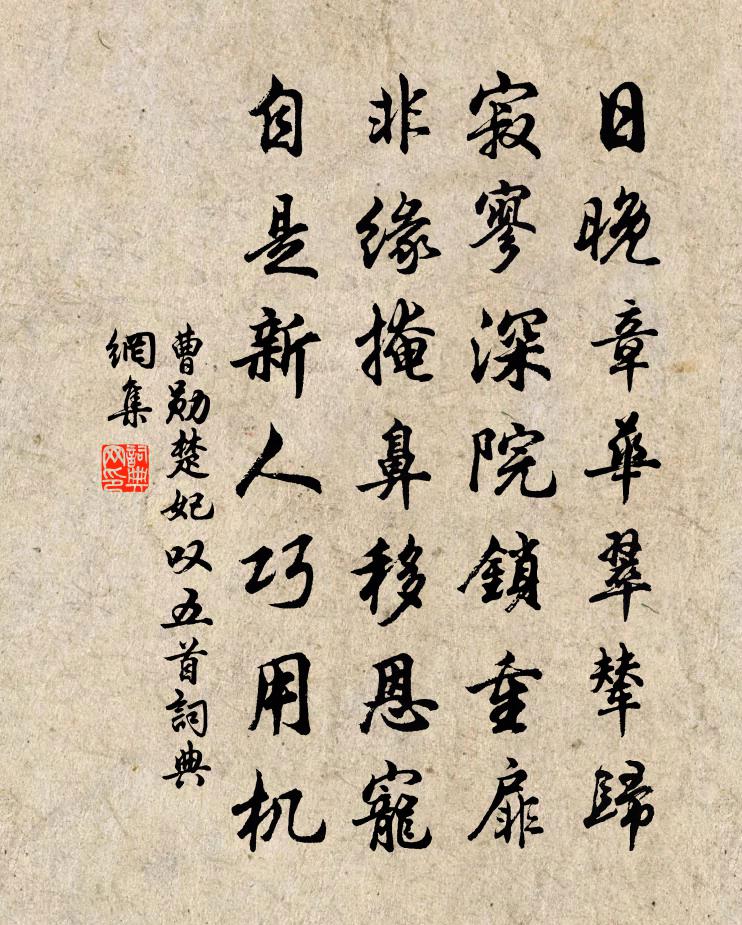 日晚章華翠輦歸
寂寥深院鎖重扉
非緣掩鼻移恩寵
自是新人巧用机
曹勛楚妃叹五首詞典
網集
詞典
网印